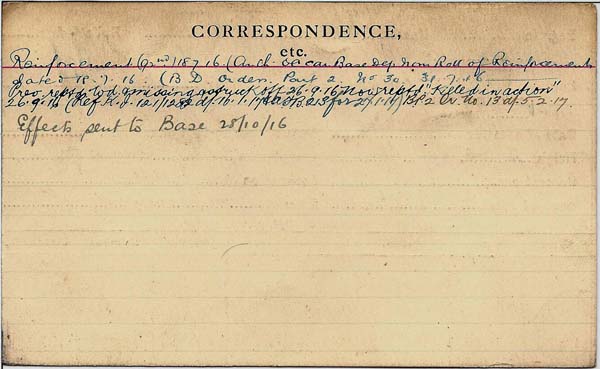 CORRESPONDENCE,
etc.
Reinforcement 187.16 (Auth. Base Dep. Nom Roll of Reinforcements
dated 18.7.16. (B.D. Orders. Part 2. No 30. 31.7.16
Prev. reptd. Wd & missing off 26.9.16 now reptd "Killed in action"
26.9.16 (Ref. B213 for 27.1.17) Pt 2 Or. No. 13 d/ 5.2.17.
Effects sent to Base 28/10/16